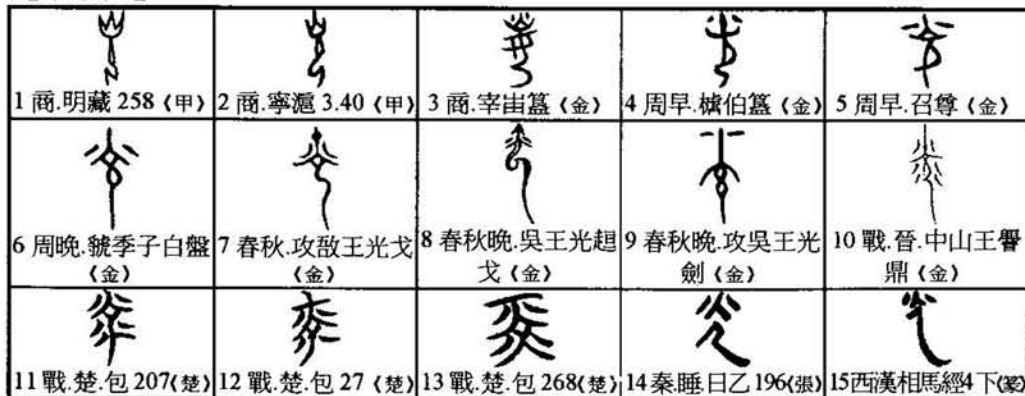 1 商.明藏 258《甲》
2 商.寧滬 3.40《甲》
3 商.宰甾簋《金》
4 周早.㯱伯簋《金》
5 周早.召尊《金》
6 周晚.虢季子白盤
《金》
7 春秋.攻敔王光戈
《金》
8 春秋晚.吳王光趄
戈《金》
9 春秋晚.攻吳王光
劍《金》
10 戰.晉.中山王
鼎《金》
11 戰.楚.包 207《楚》
12 戰.楚.包 27《楚》
13 戰.楚.包 268《楚》
14 秦.睡.日乙 196《張》
15西漢相馬經4下《篆》